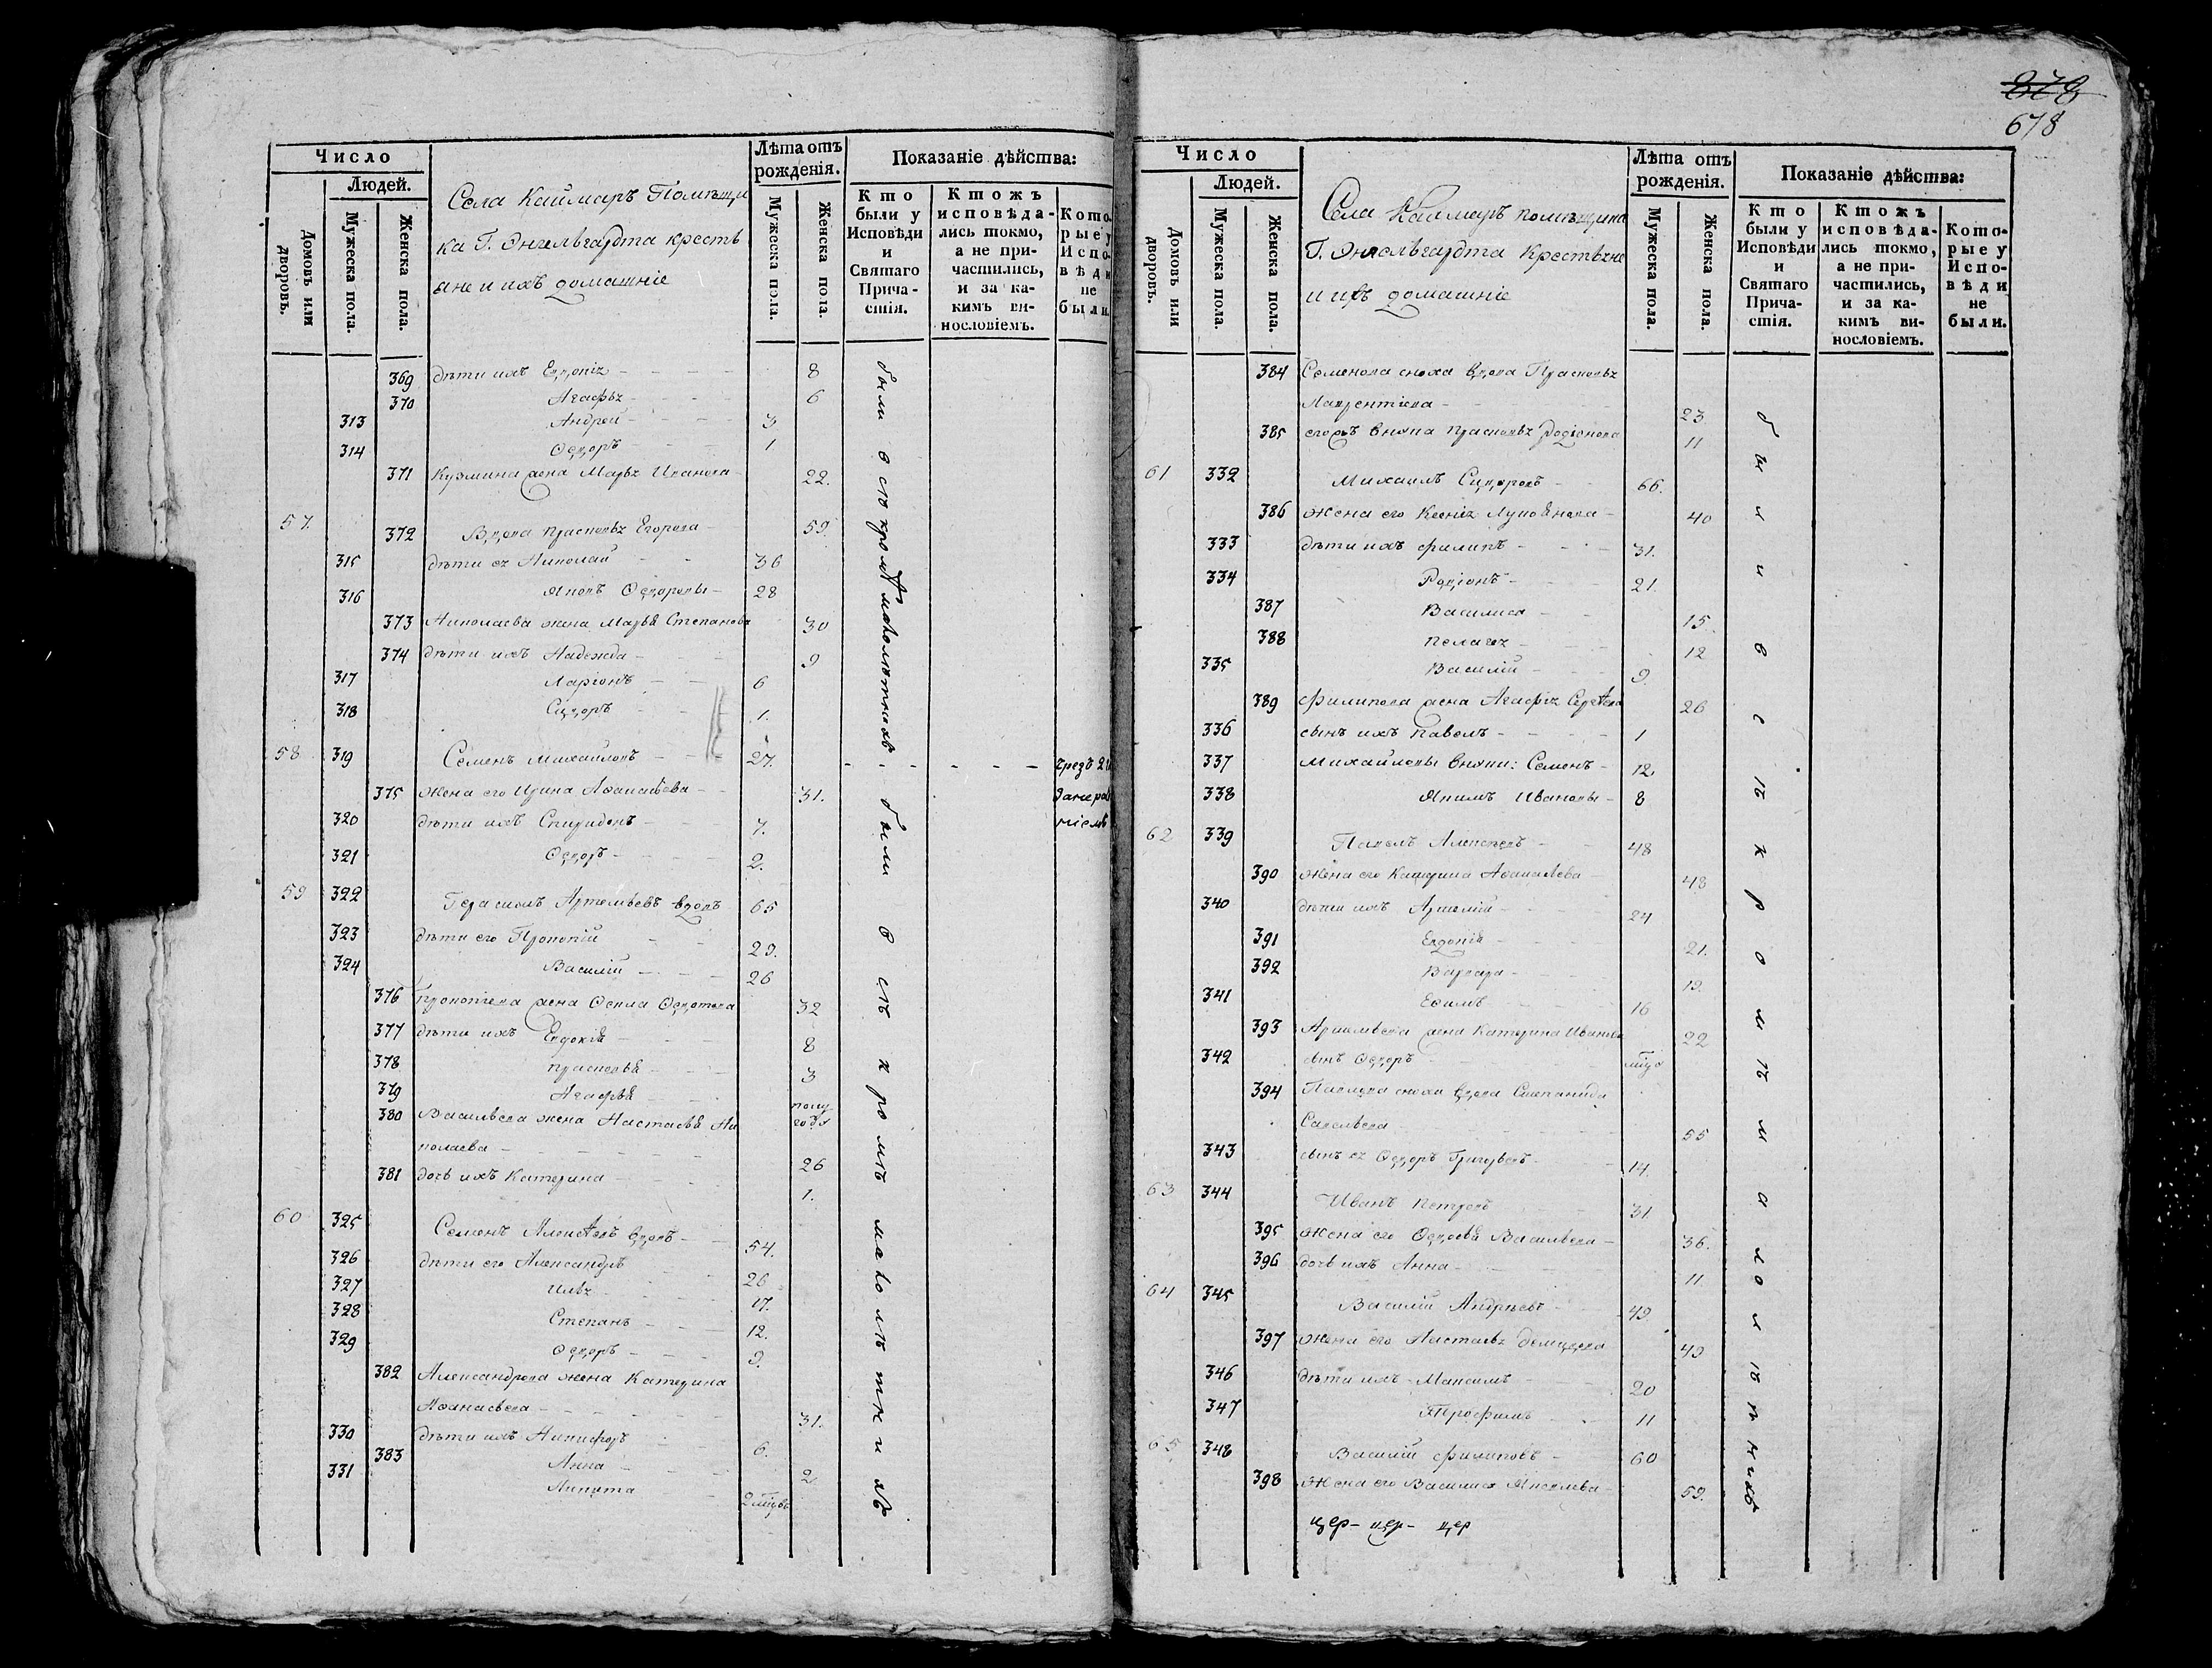 878
678
Число
Людей.
Домовъ или дворовъ.
Мужеска пола.
Женска пола.
Села Каймаръ Помѣщи
ка Г. Энгельгардта крестъ
яне и ихъ домашніе
Лѣта отъ рожденія.
Мужеска пола.
Женска пола.
Показаніе дѣйства:
Кто были у Исповѣди и Святаго Причастія.
Ктожъ исповѣдались токмо, а не причастились, и за какимъ винословіемъ.
Которые у Исповѣди не были.
369 дѣти ихъ Евдокія 8
370 Агафья 6
313 Андрей 3
314 Ѳедоръ 1
371 Кузмина жена Марья Иванова 22.
57. 372 Вдова Прасковья Егорова 59.
315 дѣти ея Николай 36
316 Яковъ Ѳедоровы 28
373 Николаева жена Марья Степанова 30
374 дѣти ихъ Надежда 9
317 Ларіонъ 6
318 Сидоръ 1.
58 319 Семенъ Михайловъ 27. чрезъ
375 Жена его Ирина Аѳанасьева 31.
320 дѣти ихъ Спиридонъ 7.
321 Ѳедоръ 2.
59 322 Герасимъ Артемьевъ вдовъ 65
323 дѣти его Прокопій 29.
324 Василій 26
376 Прокопіева жена Ѳекла Ѳедотова 32
377 дѣти ихъ Евдокія 8
378 Прасковья 3
379 Агафья полу года
380 Васильева жена Настасья Ни
колаева 26
381 дочь ихъ Катерина 1.
60 325 Семенъ Алексѣевъ вдовъ 54.
326 дѣти его Александръ 26
327 Илья 17.
328 Степанъ 12.
329 Ѳедоръ 9.
382 Александрова жена Катерина
Аѳанасьева 31.
330 дѣти ихъ Никифоръ 6.
383 Анна 2
331 Никита 2 мѣся
были всѣ кромѣ малолѣтныхъ.
были всѣ кромѣ малолѣтныхъ
Число
Людей.
Домовъ или дворовъ.
Мужеска пола.
Женска пола.
Села Каймаръ помѣщика
Г. Энгельгардта Крестьяне
и ихъ домашніе
Лѣта отъ рожденія.
Мужеска пола.
Женска пола.
Показаніе дѣйства:
Кто были у Исповѣди и Святаго Причастія.
Ктожъ исповѣдались токмо, а не причастились, и за какимъ винословіемъ.
Которые у Исповѣди не были.
384 Семенова сноха вдова Прасковья
Лаврентіева 23
385 внука Прасковья Родіонова 11
61 332 Михаилъ Сидоровъ 66.
386 Жена его Ксенія Лукоянова 40
333 дѣти ихъ Филипъ 31.
334 Родіонъ 21.
387 Василиса 15
388 Пелагея 12
335 Василій 9.
389 Филипова жена Агафья Сергѣева 26
336 сынъ ихъ Павелъ 1
337 Михайловы внуки: Семенъ 12.
338 Якимъ Ивановы 8
62 339 Павелъ Алексѣевъ 48
390 Жена его Катерина Аѳанасьева 48
340 дѣти ихъ Артемій 24
391 Евдокія 21.
392 Варвара 19.
341 Ефимъ 16
393 Артемьева жена Катерина Иванова 22
342 сынъ Ѳедоръ
394 Павлова сноха вдова Степанида
Савельева 55
343 сынъ ея Ѳедоръ Григорьевъ 14.
63 344 Иванъ Петровъ 31
395 Жена его Ѳедосья Васильева 36.
396 дочь ихъ Анна 11
64 345 Василій Андреевъ 49
397 Жена его Настасья 49
346 дѣти ихъ Максимъ 20
347 Трофимъ 11
65 348 Василій Филиповъ 60
398 Жена его Василиса Яковлева 59.
были всѣ кромѣ малолѣтныхъ
цер- цер- цер